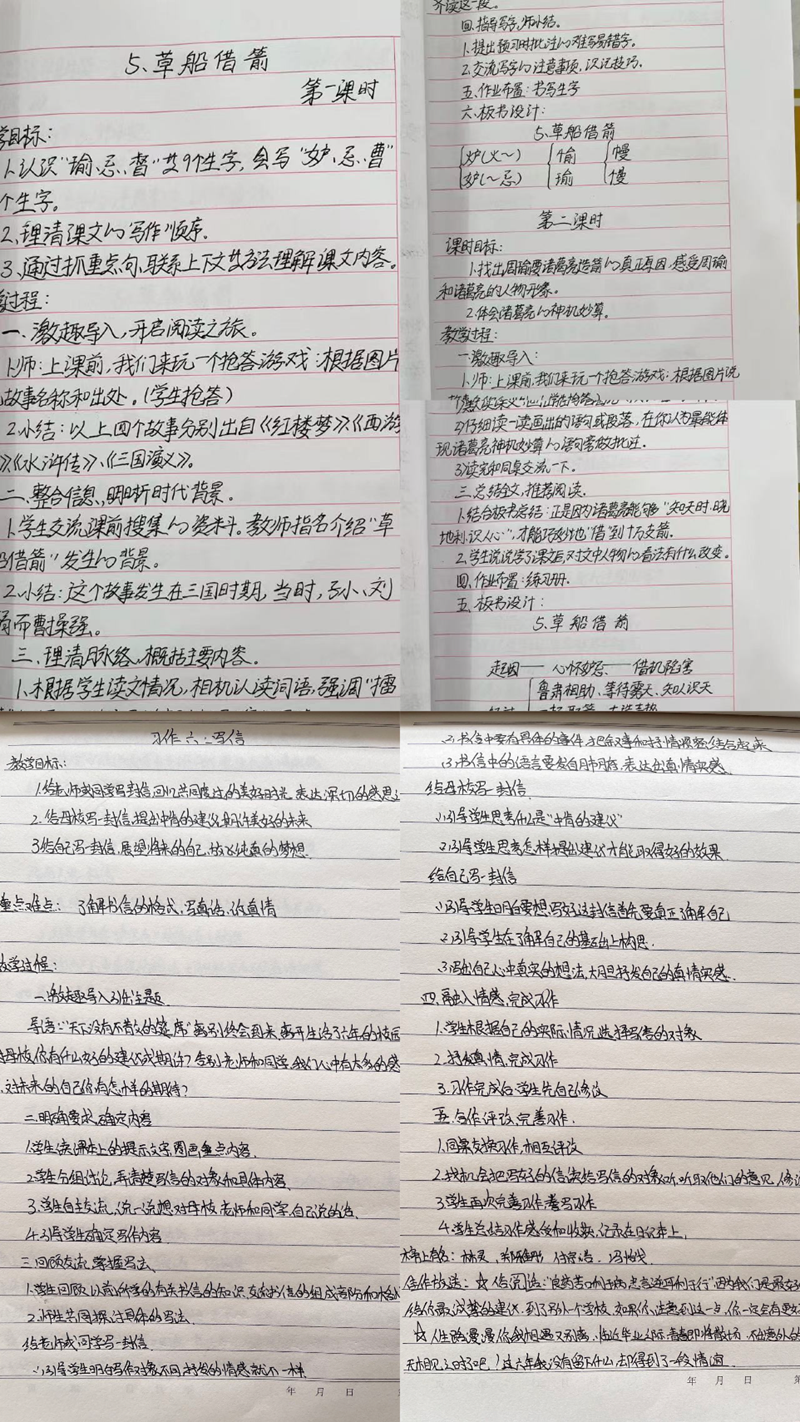 5、草船借箭
第一课时
学目标：
1、认识“瑜、忌、督”等9个生字，会写“妒、忌、曹”
个生字。
2、理清课文的写作顺序。
3、通过抓重点句、联系上下文等方法理解课文内容。
过程：
一、激趣导入，开启阅读之旅。
1、师：上课前，我们来玩一个抢答游戏：根据图片
故事名称和出处。（学生抢答）
2、小结：以上四个故事分别出自《红楼梦》《西游
》《水浒传》、《三国演义》。
二、整合信息，明晰时代背景。
1、学生交流课前搜集的资料。教师指名介绍“草
船借箭”发生的背景。
2、小结：这个故事发生在三国时期，当时，孙、刘
弱而曹操强。
三、理清脉络，概括主要内容。
1、根据学生读文情况，相机认读词语，强调“擂
齐读这一段。
四、指导写字，师小结。
1、提出预习时批注的难写易错字。
2、交流写字的注意事项、识记技巧。
五、作业布置：书写生字
六、板书设计：
5、草船借箭
妒(火～) 愉 幔
妒(～忌) 瑜 慢
第二课时
课时目标：
1、找出周瑜要诸葛亮造箭的真正原因，感受周瑜
和诸葛亮的人物形象。
2、体会诸葛亮的神机妙算。
教学过程：
一、激趣导入：
1、师：上课前，我们来玩一个抢答游戏：根据图片说
2)仔细读一读画出的语句或段落，在你认为最能体
现诸葛亮神机妙算的语句旁做批注。
3)读完和同桌交流一下。
三、总结全文，推荐阅读。
1、结合板书总结：正是因为诸葛亮能够“知天时、晓
地利、识人心”，才能巧妙地“借”到十万支箭。
2、学生说说学了课文后，对文中人物的看法有什么改变。
四、作业布置：练习册。
五、板书设计：
5、草船借箭
起因—— 心怀妒忌—— 借机陷害
鲁肃相助、等待雾天、知人识天
习作六：写信
教学目标：
1、给老师或同学写封信，回忆共同度过的美好时光，表达深切的感恩之
2、给母校写一封信，提出中肯的建议，期许美好的未来
3、给自己写一封信，展望将来的自己，放飞纯真的梦想
重点难点：了解书信的格式，写真话，诉真情
教学过程：
一、激趣导入，引出主题
导语：“天下没有不散的筵席”离别终会到来，离开生活了六年的校园
母校，你有什么好的建议或期待？告别老师和同学，我们心中有太多的感
对未来的自己你有怎样的期待？
二、明确要求，确定内容
1、学生读课本上的提示文字，圈画重点内容
2、学生分组讨论，弄清楚写信的对象和具体内容
3、学生自主交流，说一说想对母校、老师和同学、自己说的话
4、引导学生确定写作内容
三、回顾交流，掌握写法
1、学生回顾以前所学的有关书信的知识，交流书信的组成部分和格
2、师生共同探讨具体的写法
给老师或同学写一封信
(1)引导学生明白写作对象不同，抒发的情感就不一样
年 月 日
(2)书信中要有具体的事件，把叙事和抒情紧密结合起来
(3)书信中的语言要发自肺腑，表达出真情实感
给母校写一封信
(1)引导学生思考什么是“中肯的建议”
(2)引导学生思考怎样提出建议才能取得好的效果
给自己写一封信
(1)引导学生明白要想写好这封信首先要真正了解自己
(2)引导学生在了解自己的基础上构思
(3)写出自己心中真实的想法，大胆抒发自己的真情实感
四、融入情感，完成习作
1、学生根据自己的实际情况，选择写信的对象
2、抒发真情，完成习作
3、习作完成后，学生先自己修改
五、合作评改，完善习作
1、同桌交换习作，相互评议
2、找机会把写好的信读给写信的对象听，听取他们的意见，修
3、学生再次完善习作，誊写习作
4、学生总结习作感受和收获，记录在日记本上
年 月 日